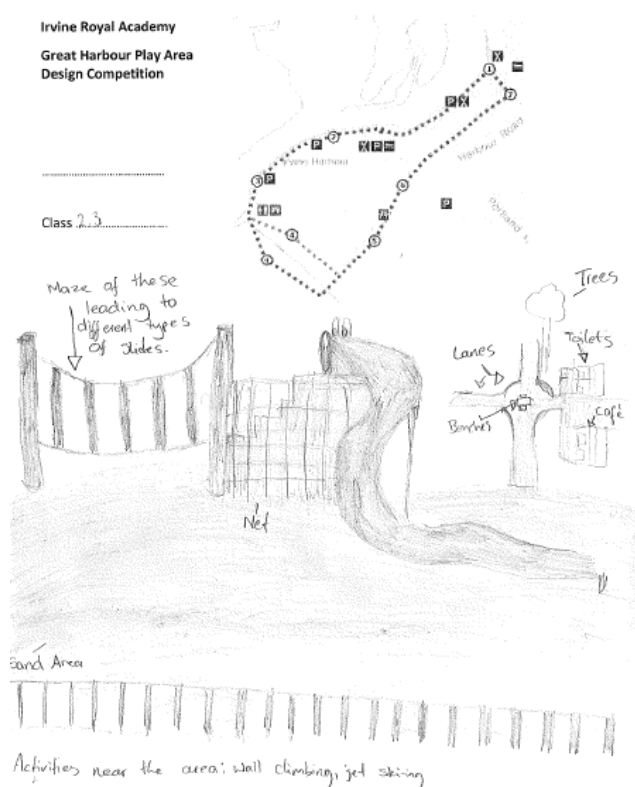 Irvine Royal Academy
Great Harbour Play Area
Design Competition
Class 2.3
1
P
2
P
2
P
Harbour Road
Irvine Harbour
3
P
6
P
Portland
4
5
Maze of these
leading to
different types
of slides.
Trees
Toilets
Lanes
Benches
Café
Net
Sand Area
Activities near the area: wall climbing, jet skiing